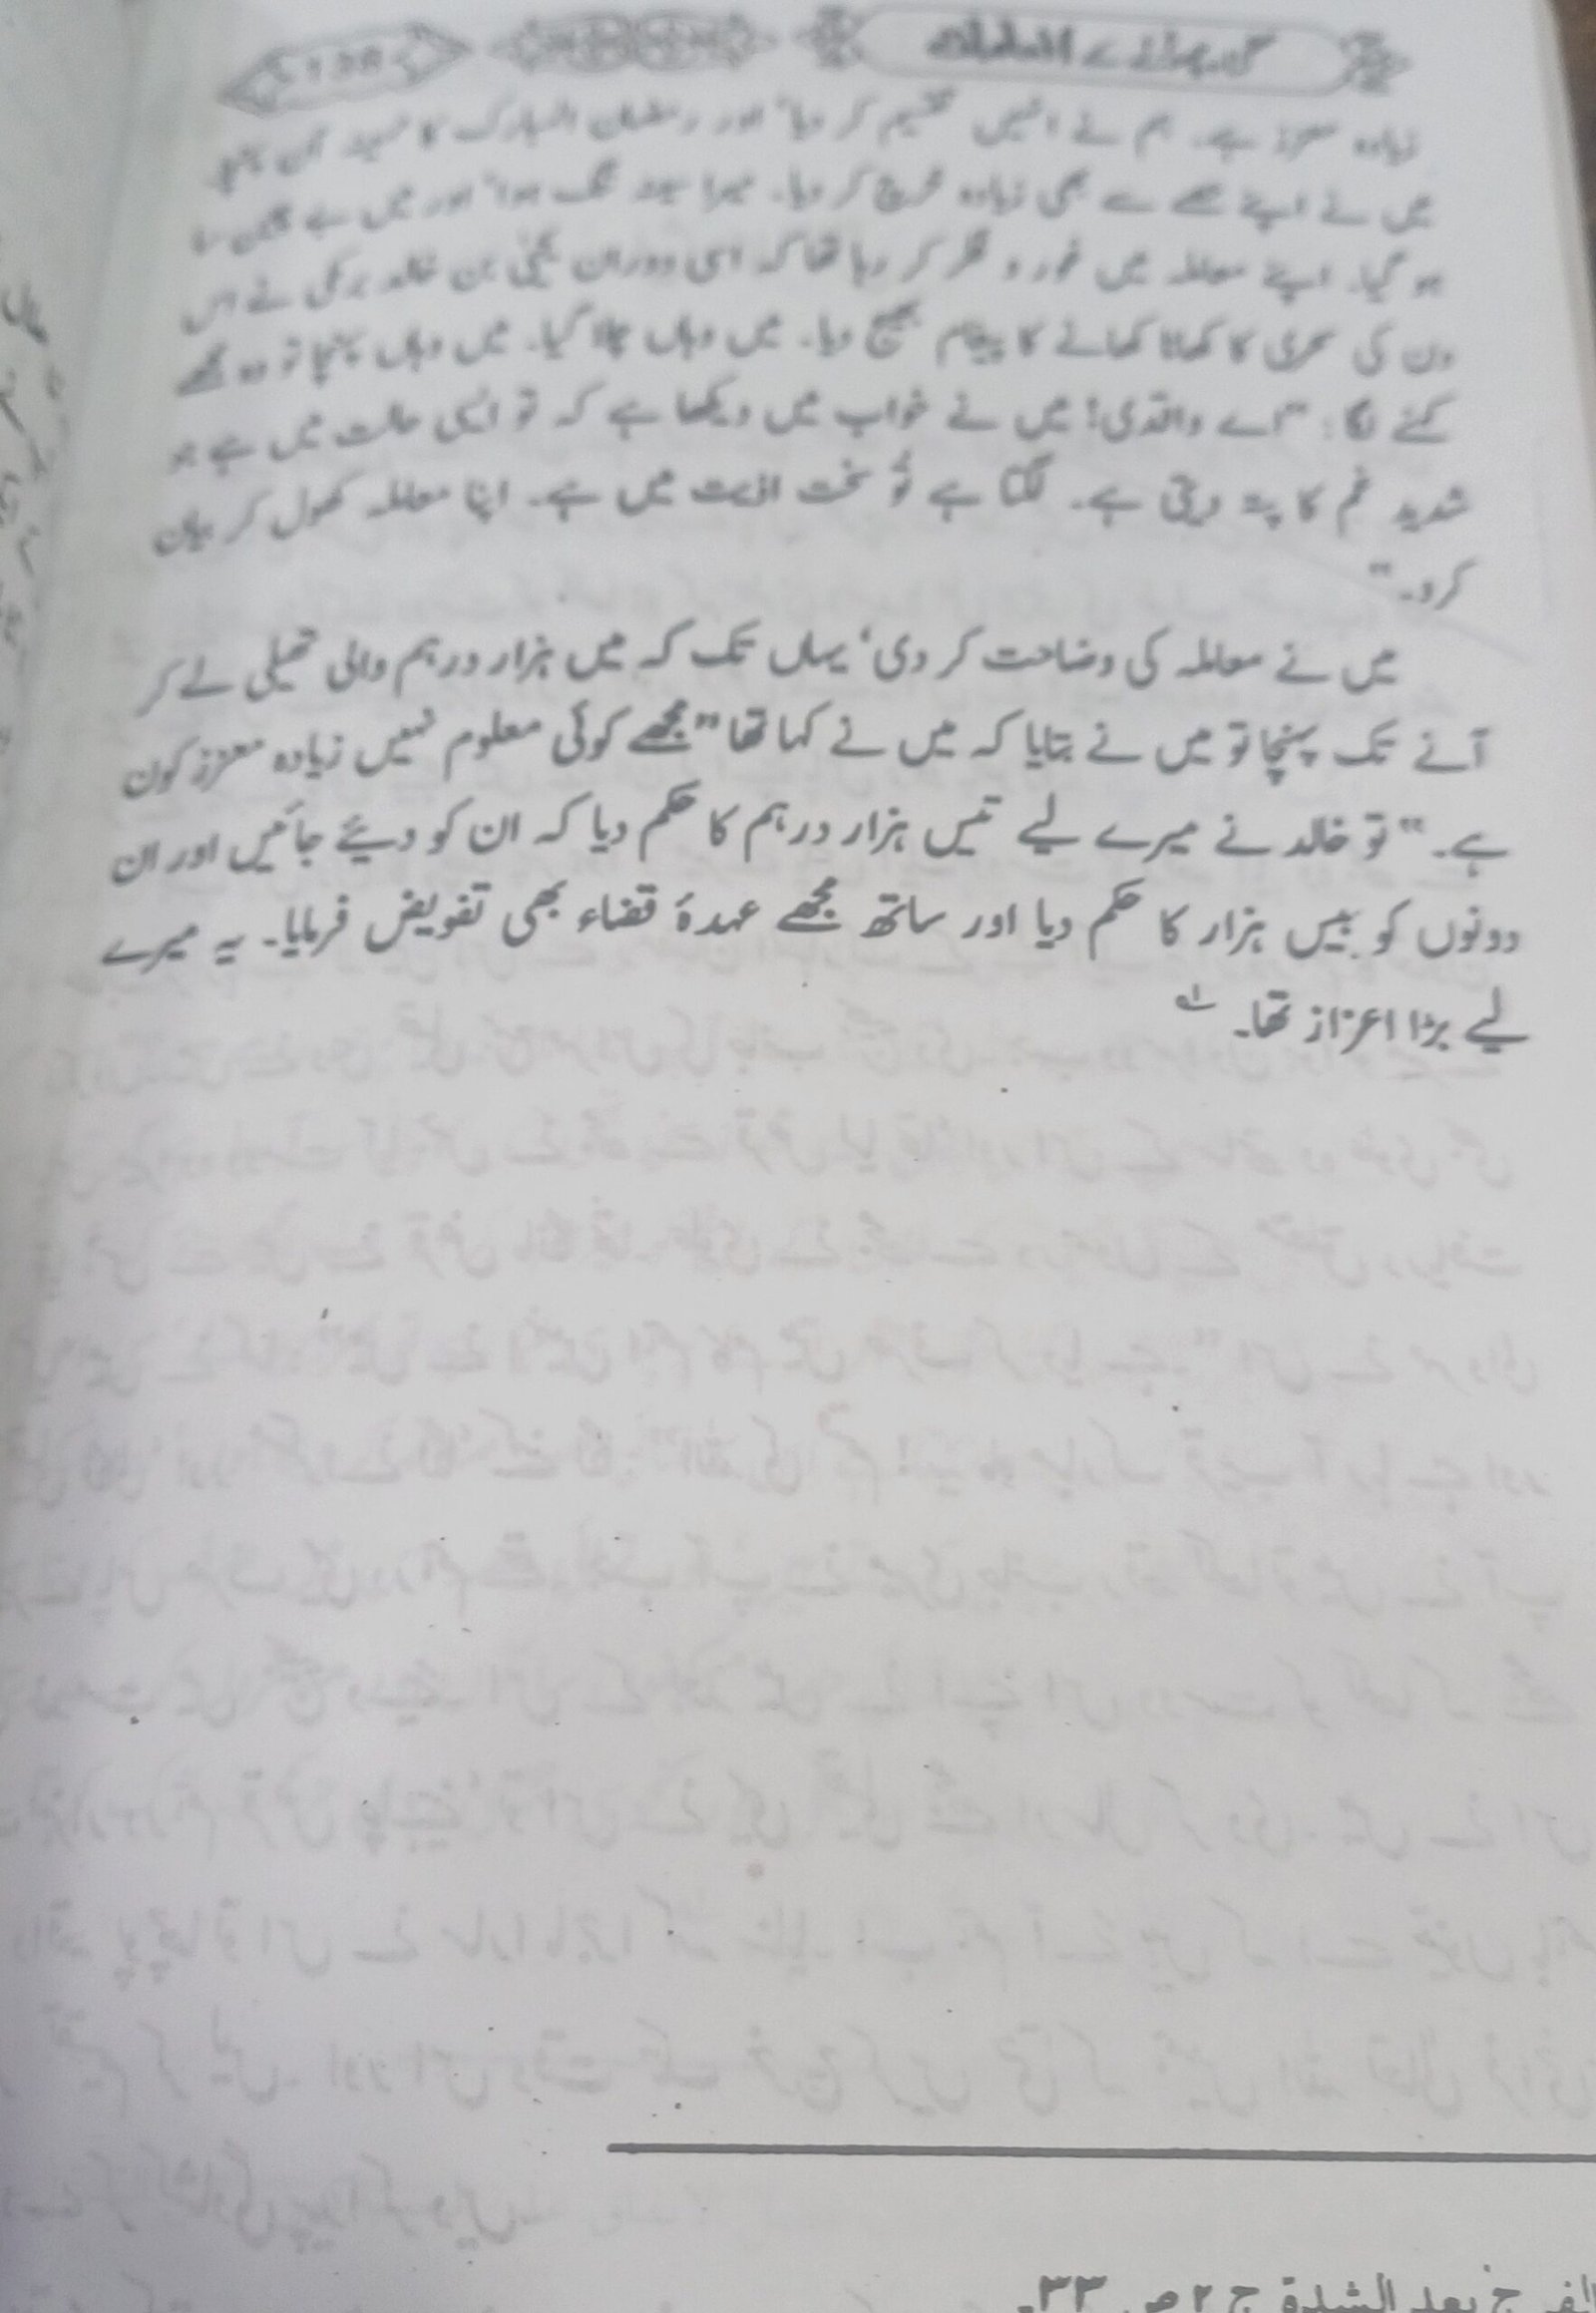 زیادہ معزز ہے۔ ہم نے انہیں تقسیم کر دیا، اور رمضان المبارک کا مہینہ آن پہنچا
میں نے اپنے حصے سے بھی زیادہ خرچ کر دیا۔ میرا سینہ تنگ ہوا، اور میں بے چین سا
ہو گیا۔ اپنے معاملہ میں غور و فکر کر رہا تھا کہ اسی دوران یحییٰ بن خالد برمکی نے اس
دن کی سحری کا کھانا کھانے کا پیغام بھیج دیا۔ میں وہاں چلا گیا۔ میں وہاں پہنچا تو وہ مجھے
کہنے لگا: "اے واقدی! میں نے خواب میں دیکھا ہے کہ تو ایسی حالت میں ہے جو
شدید غم کا پتہ دیتی ہے۔ لگتا ہے تُو سخت اذیت میں ہے۔ اپنا معاملہ کھول کر بیان
کرو۔"
میں نے معاملہ کی وضاحت کر دی، یہاں تک کہ میں ہزار درہم والی تھیلی لے کر
آنے تک پہنچا تو میں نے بتایا کہ میں نے کہا تھا "مجھے کوئی معلوم نہیں زیادہ معزز کون
ہے۔" تو خالد نے میرے لیے تیس ہزار درہم کا حکم دیا کہ ان کو دیئے جائیں اور ان
دونوں کو بیس ہزار کا حکم دیا اور ساتھ مجھے عہدۂ قضاء بھی تفویض فرمایا۔ یہ میرے
لیے بڑا اعزاز تھا۔ ؎۱
الفرج بعد الشدة ج ۲ ص ۳۳۔